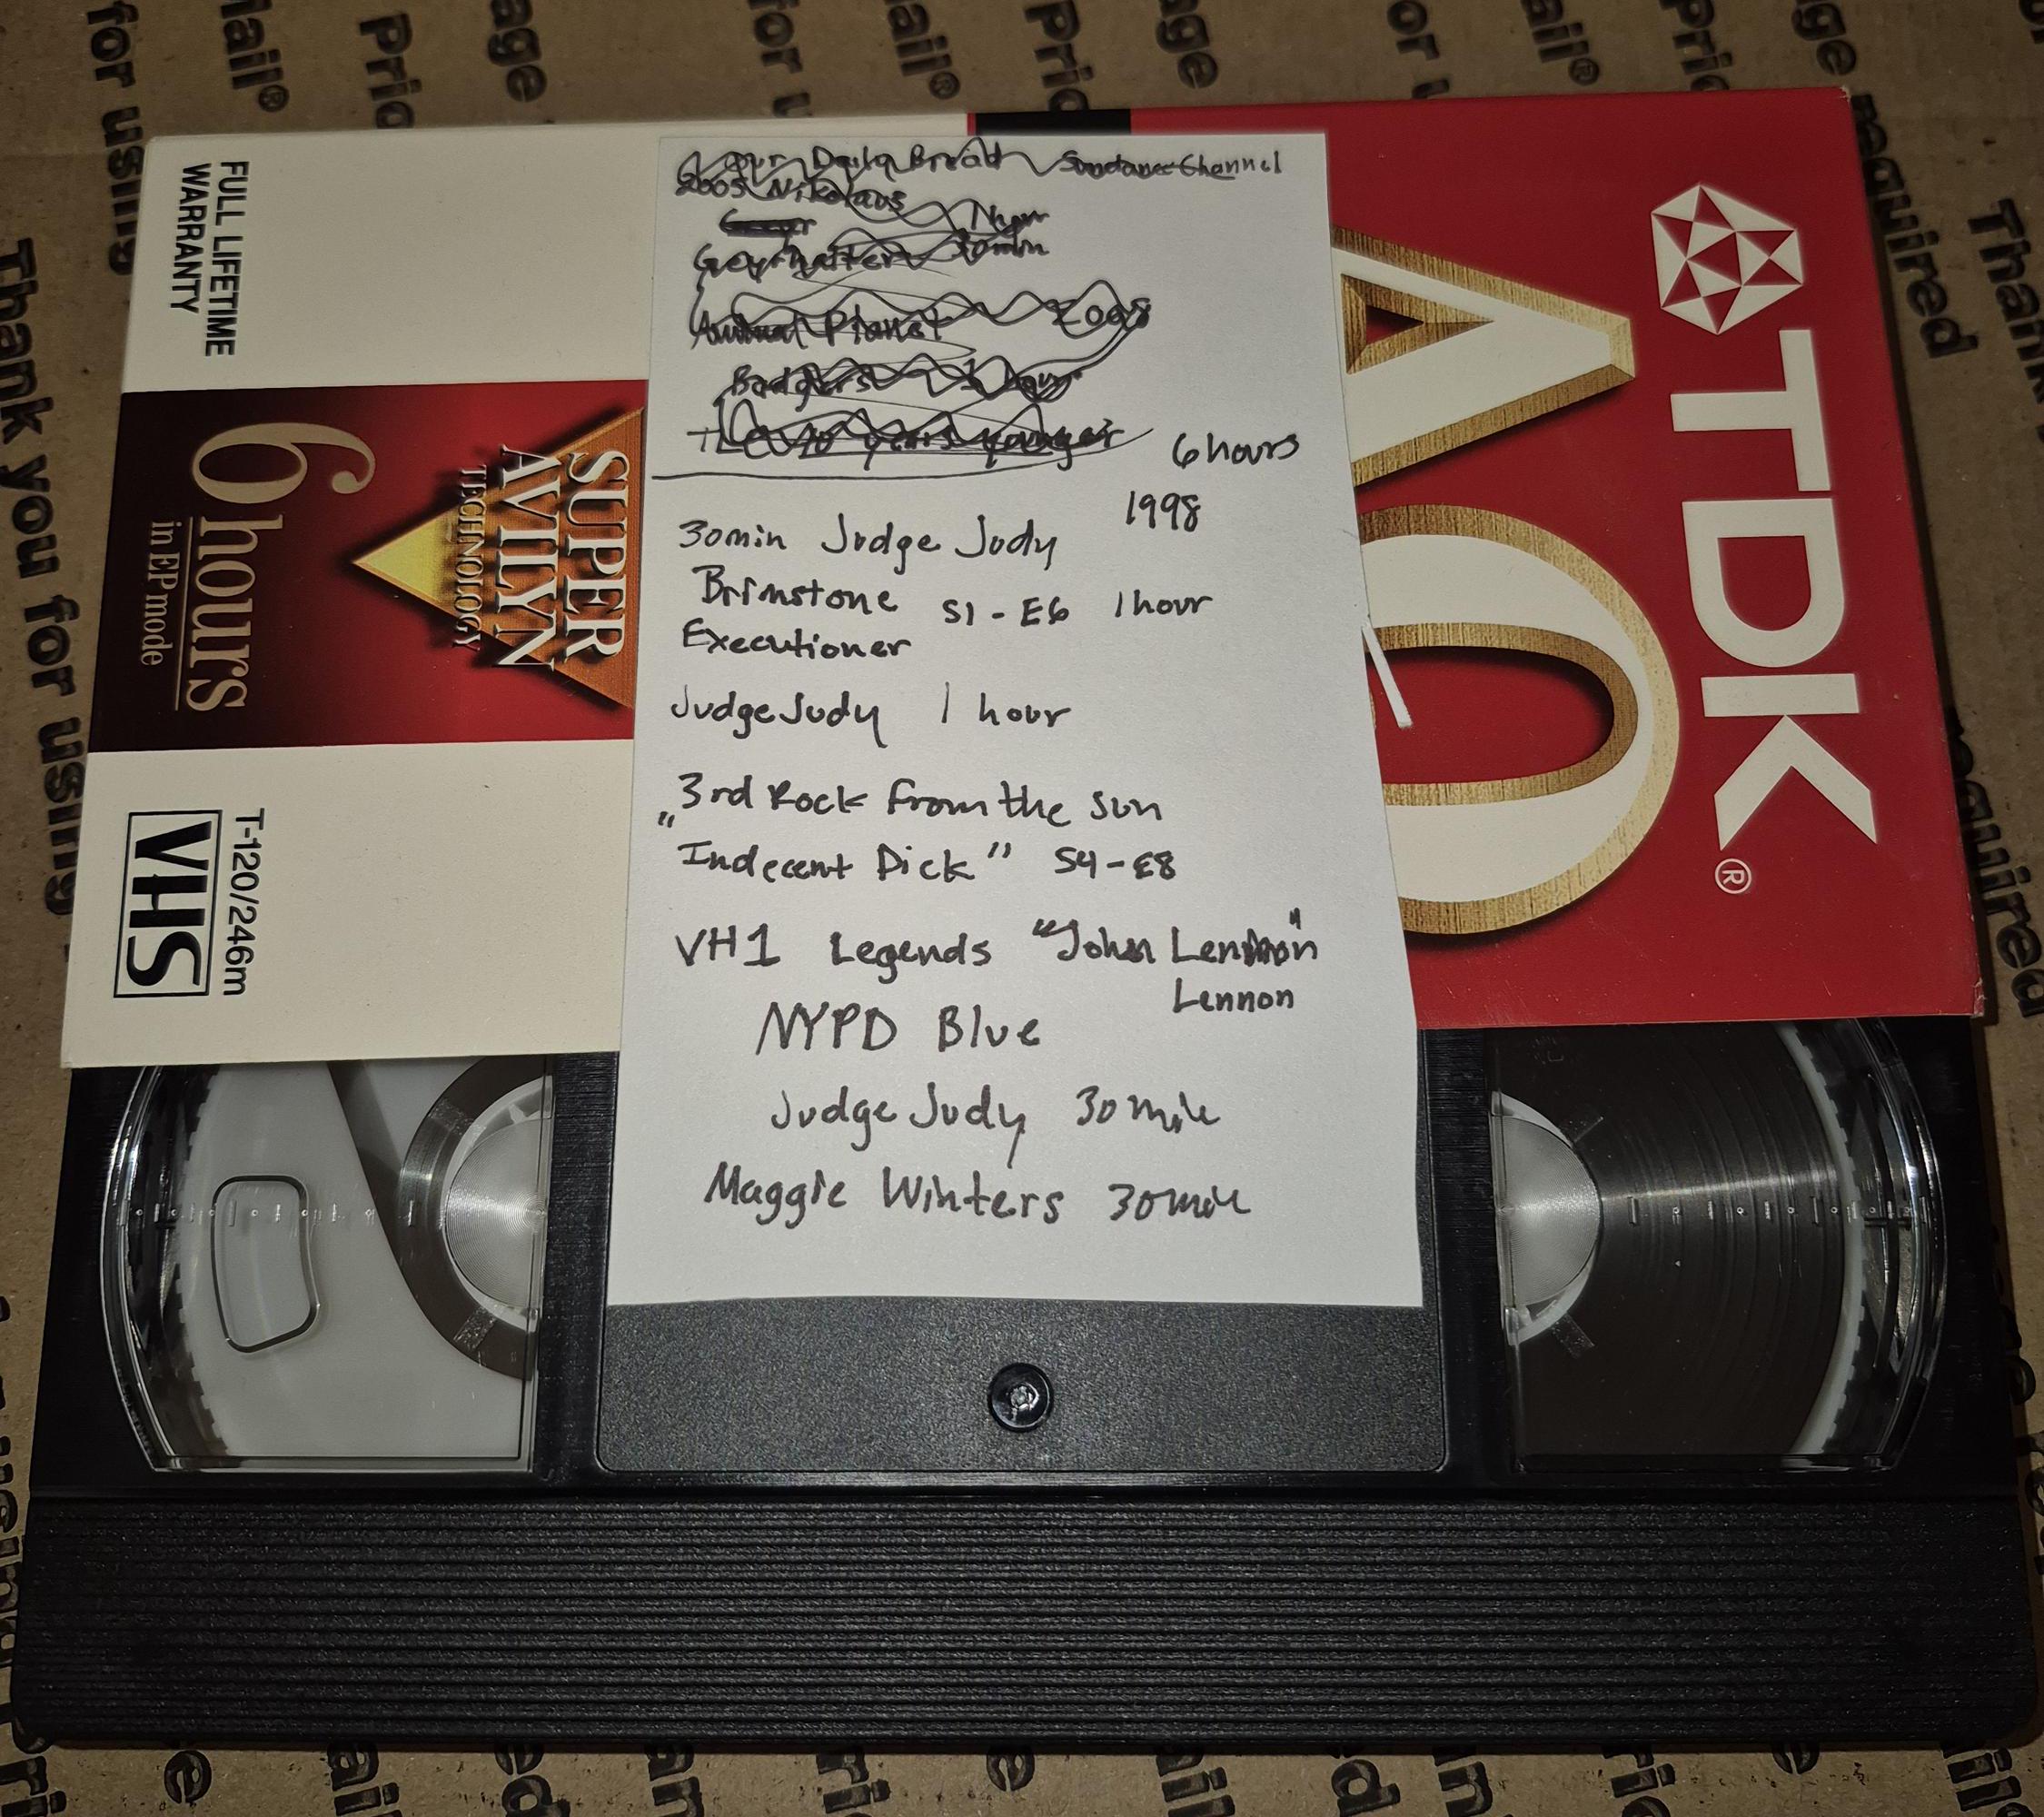 Our Daily Bread Sundance Channel
2005 Nikolaus
1 hour
Geyrhalter 30min
Animal Planet 2008
Badgers 1 hour
TLC 10 years younger
6 hours
1998
30min Judge Judy
Brimstone S1-E6 1 hour
Executioner
Judge Judy 1 hour
3rd Rock from the Sun
"Indecent Dick" S4-E8
VH1 Legends "John Lennon"
Lennon
NYPD Blue
Judge Judy 30min
Maggie Winters 30min
FULL LIFETIME
WARRANTY
SUPER
AVILYN
TECHNOLOGY
6 hours
in EP mode
T-120/246m
VHS
TDK®
Thank you for using
required